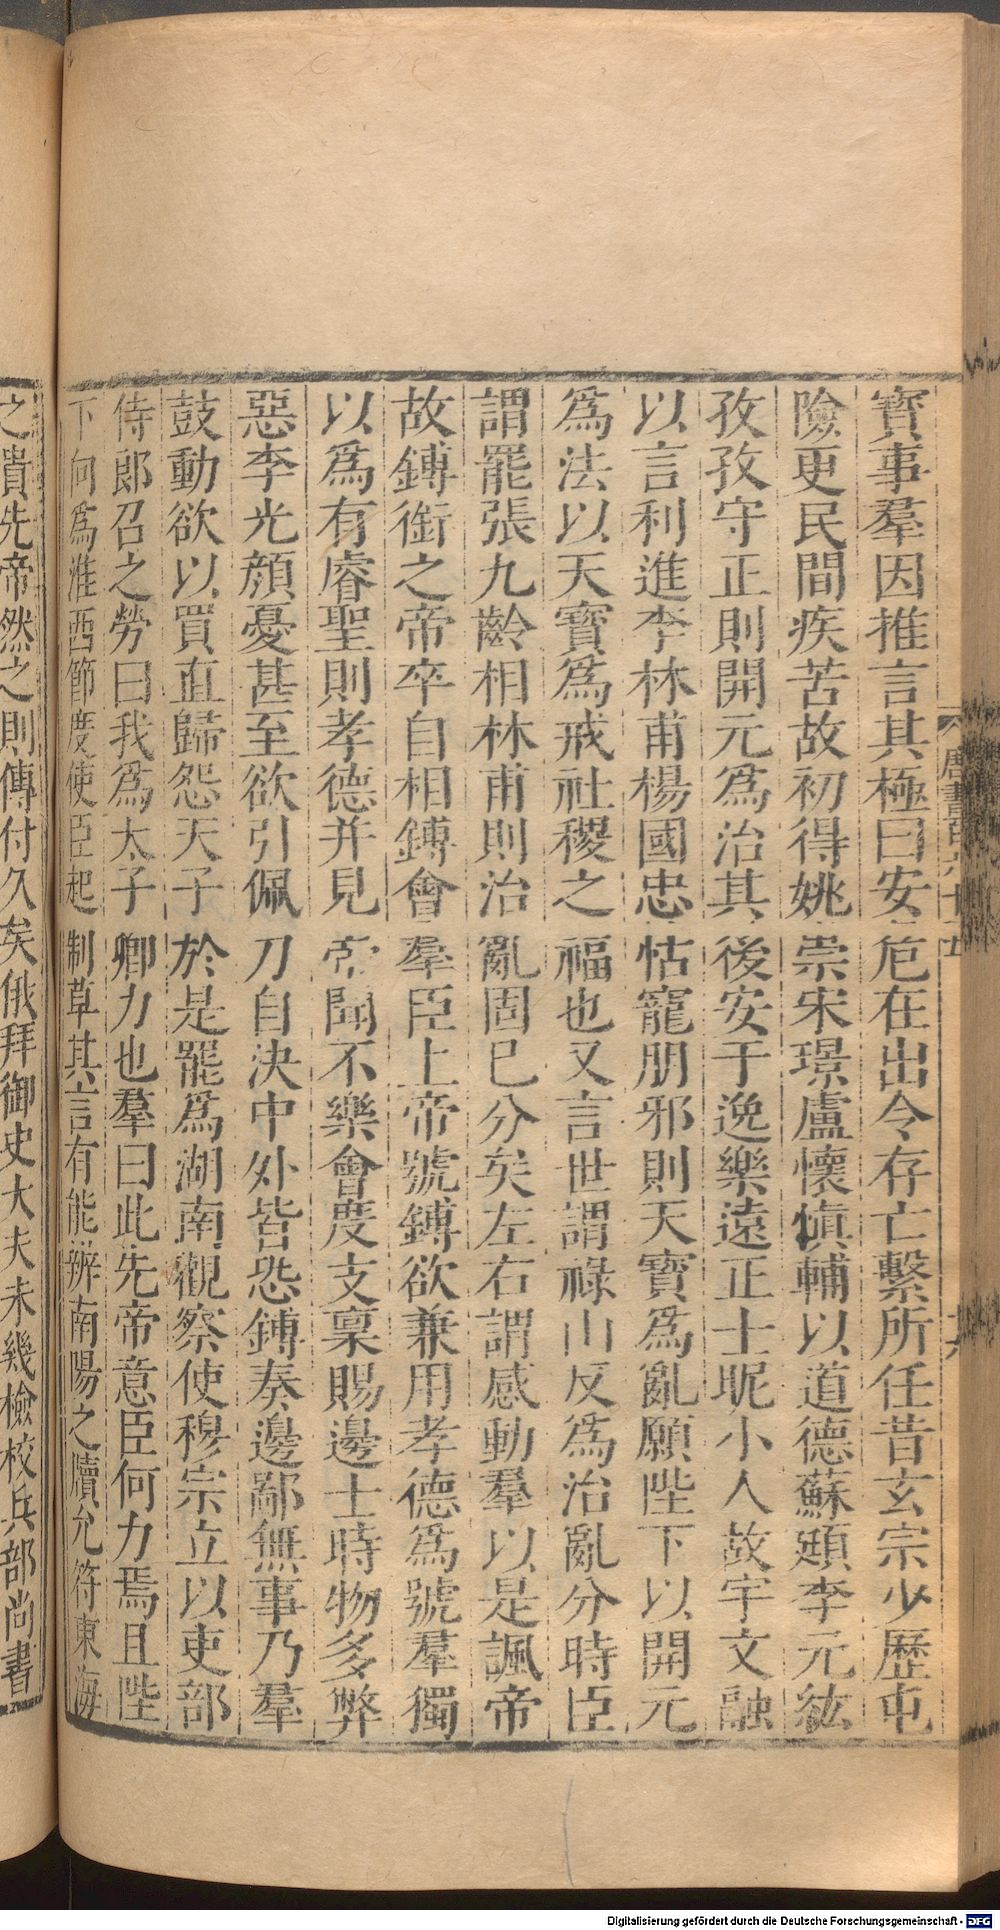 寶事羣因推言其極曰安危在出令存亡繫所任昔玄宗少歷屯
險更民間疾苦故初得姚崇宋璟盧懷愼輔以道德蘇頲李元紘
孜孜守正則開元為治其後安于逸樂遠正士昵小人故宇文融
以言利進李林甫楊國忠怙寵朋邪則天寶為亂願陛下以開元
為法以天寶為戒社稷之福也又言世謂祿山反為治亂分時臣
謂罷張九齡相林甫則治亂固已分矣左右謂感動羣以是諷帝
故鎛銜之帝卒自相鎛會羣臣上帝號鎛欲兼用孝德為號羣獨
以為有睿聖則孝德并見帝聞不樂會度支稟賜邊士時物多弊
惡李光顏憂甚至欲引佩刀自決中外皆恐鎛奏邊鄙無事乃羣
鼓動欲以買直歸怨天子於是罷為湖南觀察使穆宗立以吏部
侍郎召之勞曰我為太子卿力也羣曰此先帝意臣何力焉且陛
下向為淮西節度使臣起制草其言有能辨南陽之牘允符東海
之貴先帝然之則傳付久矣俄拜御史大夫未幾檢校兵部尚書
唐書百六十五
十六
Digitalisierung gefördert durch die Deutsche Forschungsgemeinschaft - DFG